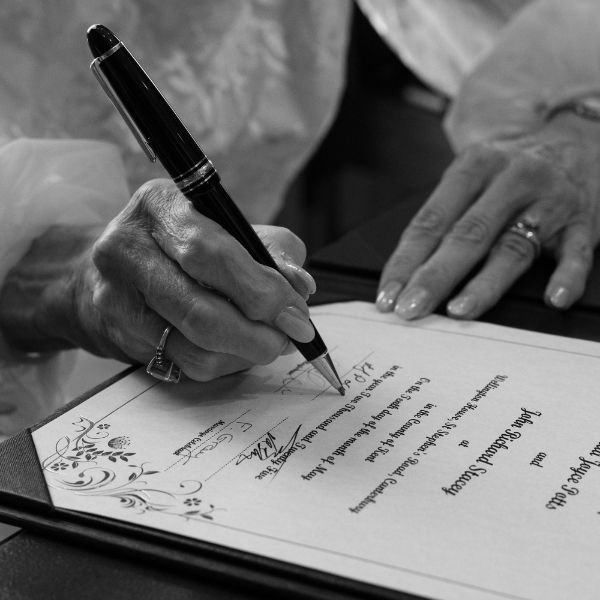 Joyce Potts
and
John Richard Stacey
at
Wellington House, St Stephen's Road, Canterbury
in the County of Kent
On the Tenth day of the month of May
in the year Two Thousand and Twenty Five
E Grant
Marriage Celebrant